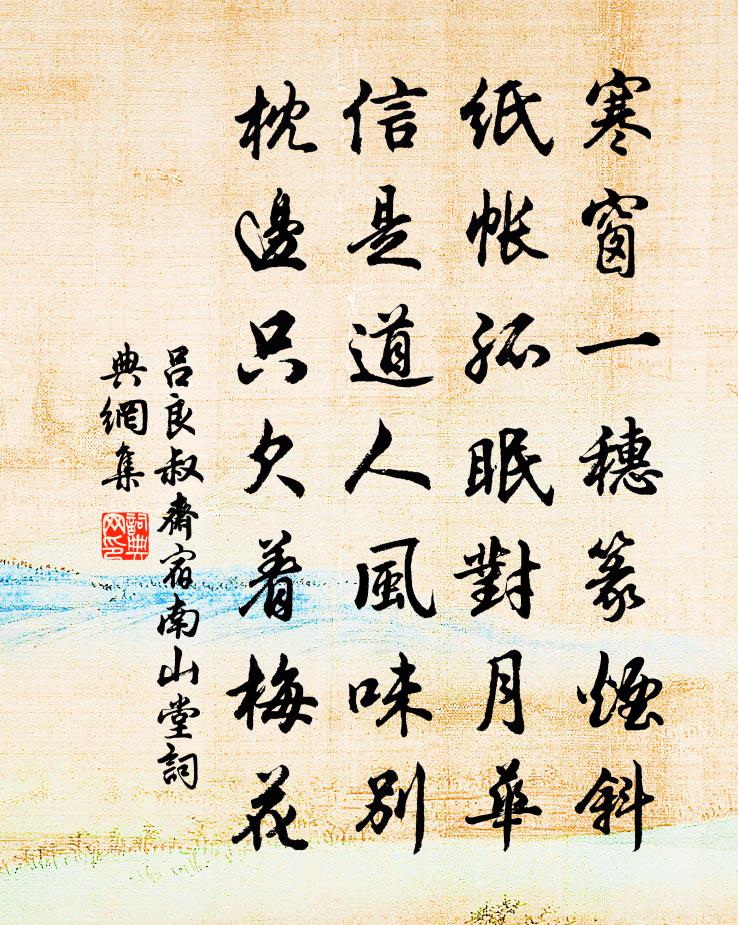 寒窗一穗篆煙斜
紙帳孤眠對月華
信是道人風味別
枕邊只欠着梅花
呂良叔齋宿南山堂詞
典網集
詞典
网印